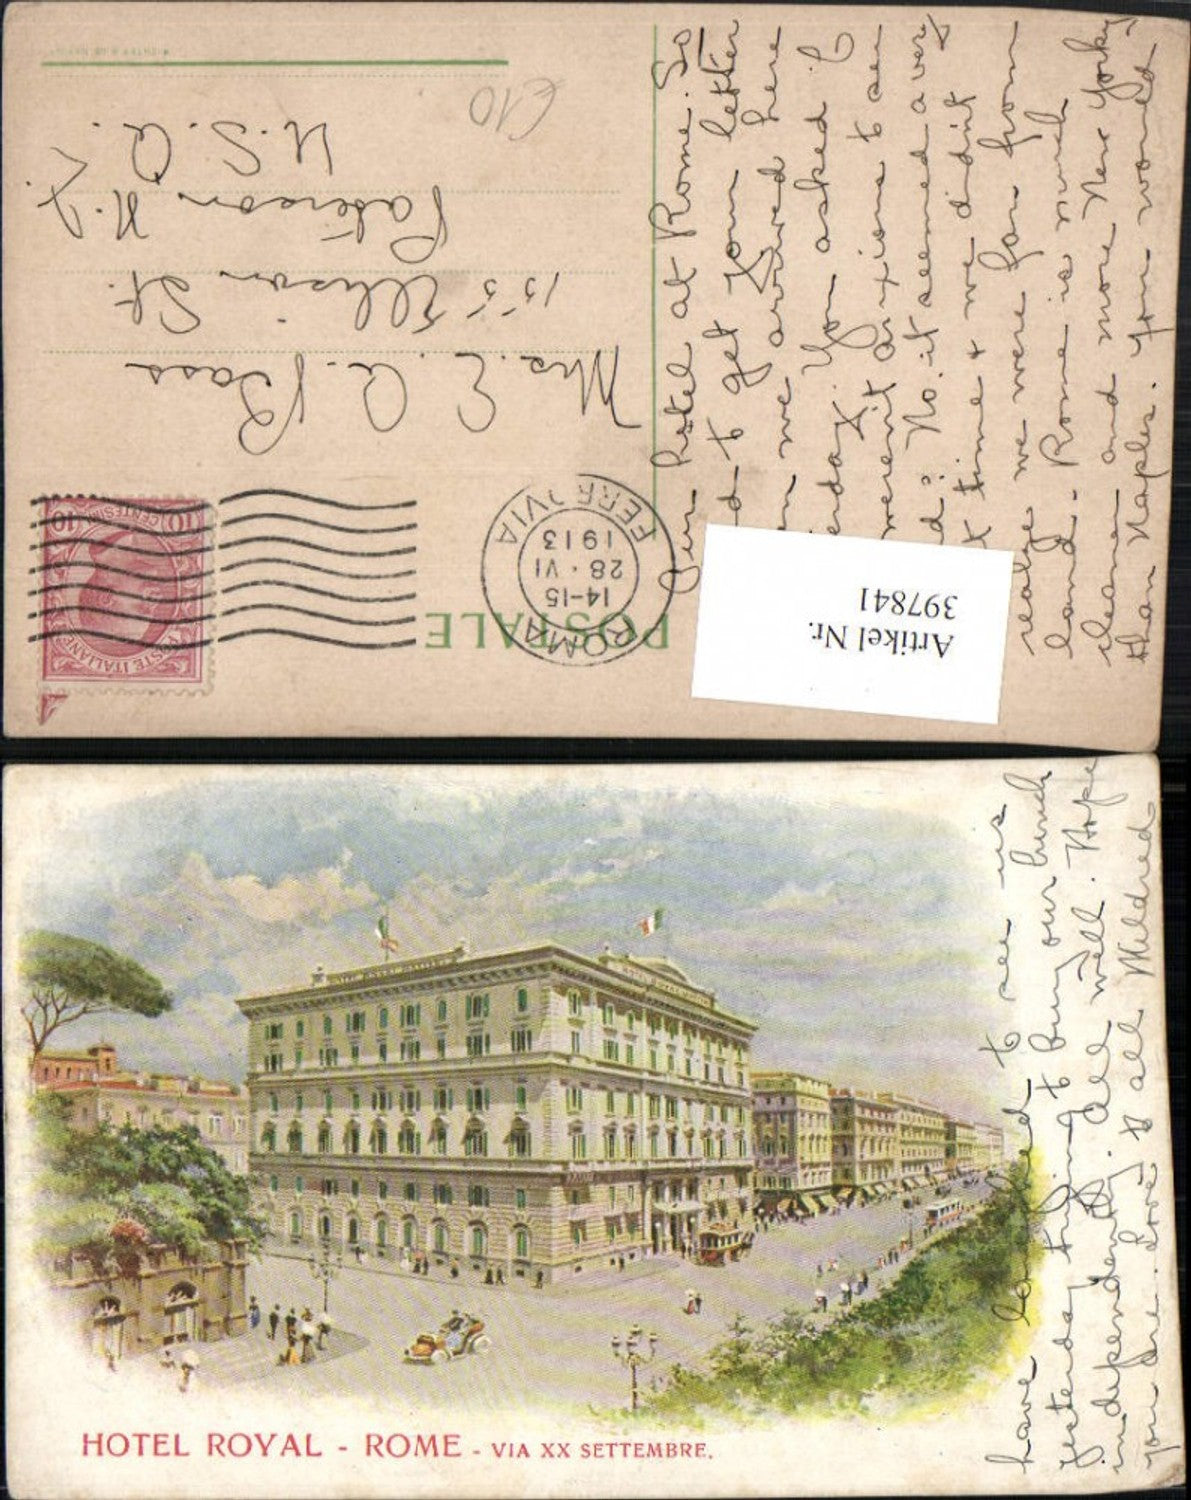 POSTALE
ROMA
FERROVIA
14-15
28 · VI
1913
POSTE ITALIANE
CENTESIMI
10
10
£10
Mrs. E. A. Bass
155 Ellison St.
Paterson N.J.
U.S.A.
Our hotel at Rome. So
to get your letter
we arrived here
You asked if
weren't anxious to see
No, it seemed a very
time + we didn't
realize we were far from
land. Rome is much
cleaner and more New Yorky
than Naples. You would
Artikel Nr.
397841
have to see us
yesterday trying to buy our lunch
independently. All well. Hope
you are. Love to all Mildred
HOTEL ROYAL - ROME - VIA XX SETTEMBRE.